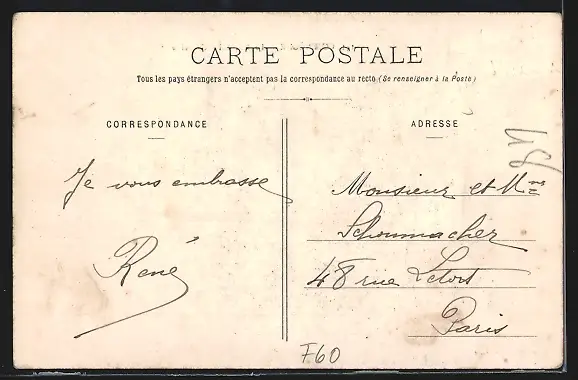 CARTE POSTALE
Tous les pays étrangers n'acceptent pas la correspondance au recto (Se renseigner à la Poste)
CORRESPONDANCE
ADRESSE
Je vous embrasse
René
Monsieur et Mme
Schoumacher
48 rue Letort
Paris
F60